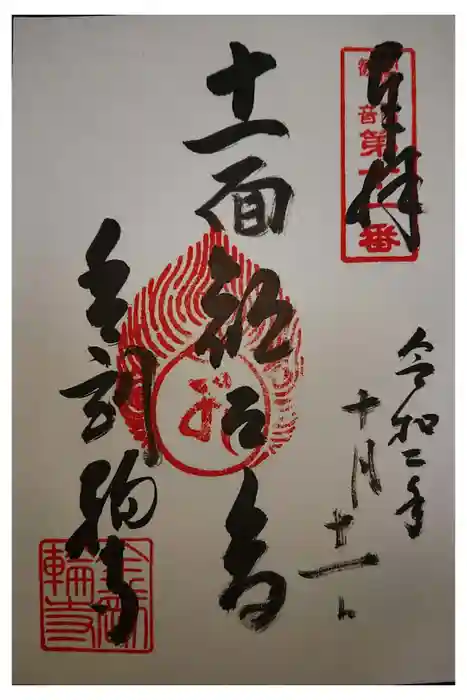 奉拝
音 第 番
令和二年
十月十一日
十一面観世音
金剛輪寺
金剛
輪寺